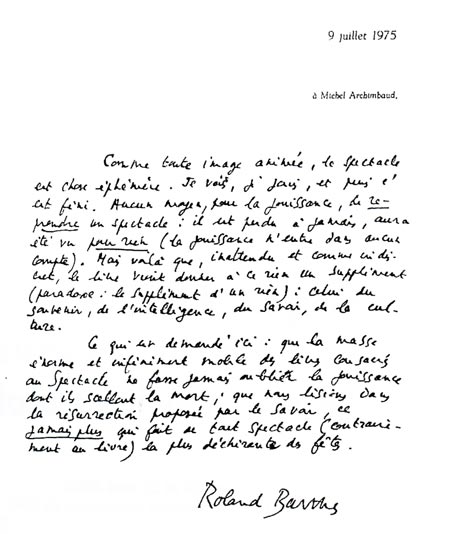 9 juillet 1975
à Michel Archimbaud,
Comme toute image animée, le spectacle
est chose éphémère. Je vois, je jouis, et puis c'
est fini. Aucun moyen, pour la jouissance, de re-
prendre un spectacle : il est perdu à jamais, aura
été vu pour rien (la jouissance n'entre dans aucun
compte). Mais voilà que, inattendu et comme indis-
cret, le livre vient donner à ce rien un supplément
(paradoxe : le supplément d'un rien) : celui du
souvenir, de l'intelligence, du savoir, de la cul-
ture.
Ce qui est demandé ici : que la masse
énorme et infiniment mobile des livres consacrés
au Spectacle ne fasse jamais oublier la jouissance
dont ils scellent la mort ; que nous lisions dans
la résurrection proposée par le savoir, ce
jamais plus qui fait de tout spectacle (contraire-
ment au livre) la plus déchirante des fêtes.
Roland Barthes